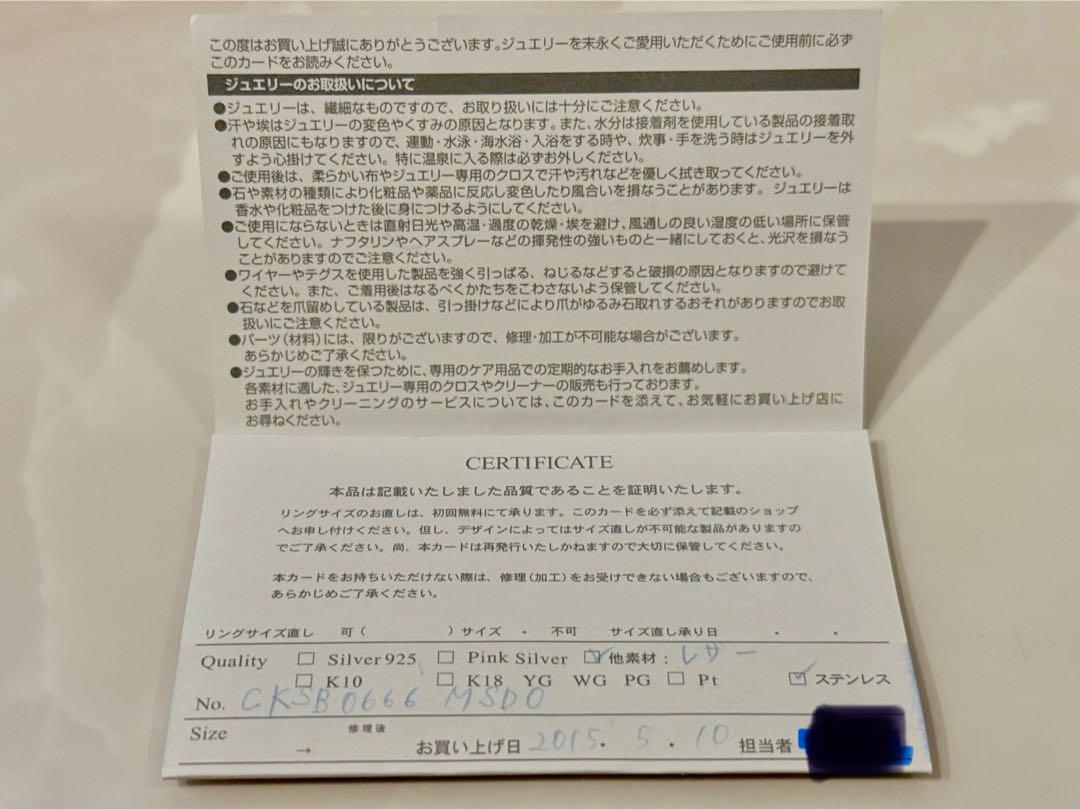 この度はお買い上げ誠にありがとうございます。ジュエリーを末永くご愛用いただくためにご使用前に必ず
このカードをお読みください。
ジュエリーのお取扱いについて
●ジュエリーは、繊細なものですので、お取り扱いには十分にご注意ください。
●汗や埃はジュエリーの変色やくすみの原因となります。また、水分は接着剤を使用している製品の接着取
れの原因にもなりますので、運動・水泳・海水浴・入浴をする時や、炊事・手を洗う時はジュエリーを外
すよう心掛けてください。特に温泉に入る際は必ずお外しください。
●ご使用後は、柔らかい布やジュエリー専用のクロスで汗や汚れなどを優しく拭き取ってください。
●石や素材の種類により化粧品や薬品に反応し変色したり風合いを損なうことがあります。ジュエリーは
香水や化粧品をつけた後に身につけるようにしてください。
●ご使用にならないときは直射日光や高温・過度の乾燥・埃を避け、風通しの良い湿度の低い場所に保管
してください。ナフタリンやヘアスプレーなどの揮発性の強いものと一緒にしておくと、光沢を損なう
ことがありますのでご注意ください。
●ワイヤーやテグスを使用した製品を強く引っぱる、ねじるなどすると破損の原因となりますので避けて
ください。また、ご着用後はなるべくかたちをこわさないよう保管してください。
●石などを爪留めしている製品は、引っ掛けなどにより爪がゆるみ石取れするおそれがありますのでお取
扱いにご注意ください。
●パーツ(材料)には、限りがございますので、修理・加工が不可能な場合がございます。
あらかじめご了承ください。
●ジュエリーの輝きを保つために、専用のケア用品での定期的なお手入れをお薦めします。
各素材に適した、ジュエリー専用のクロスやクリーナーの販売も行っております。
お手入れやクリーニングのサービスについては、このカードを添えて、お気軽にお買い上げ店に
お尋ねください。
CERTIFICATE
本品は記載いたしました品質であることを証明いたします。
リングサイズのお直しは、初回無料にて承ります。このカードを必ず添えて記載のショップ
へお申し付けください。但し、デザインによってはサイズ直しが不可能な製品がありますの
でご了承ください。尚、本カードは再発行いたしかねますので大切に保管してください。
本カードをお持ちいただけない際は、修理(加工)をお受けできない場合もございますので、
あらかじめご了承ください。
リングサイズ直し 可( )サイズ ・ 不可 サイズ直し承り日 ・ ・
Quality □ Silver925 □ Pink Silver ☑他素材：レザー
□ K10 □ K18 YG WG PG □ Pt ☑ステンレス
No. CKSB0666 MSDO
Size → 修理後 お買い上げ日 2015. 5 . 10 担当者